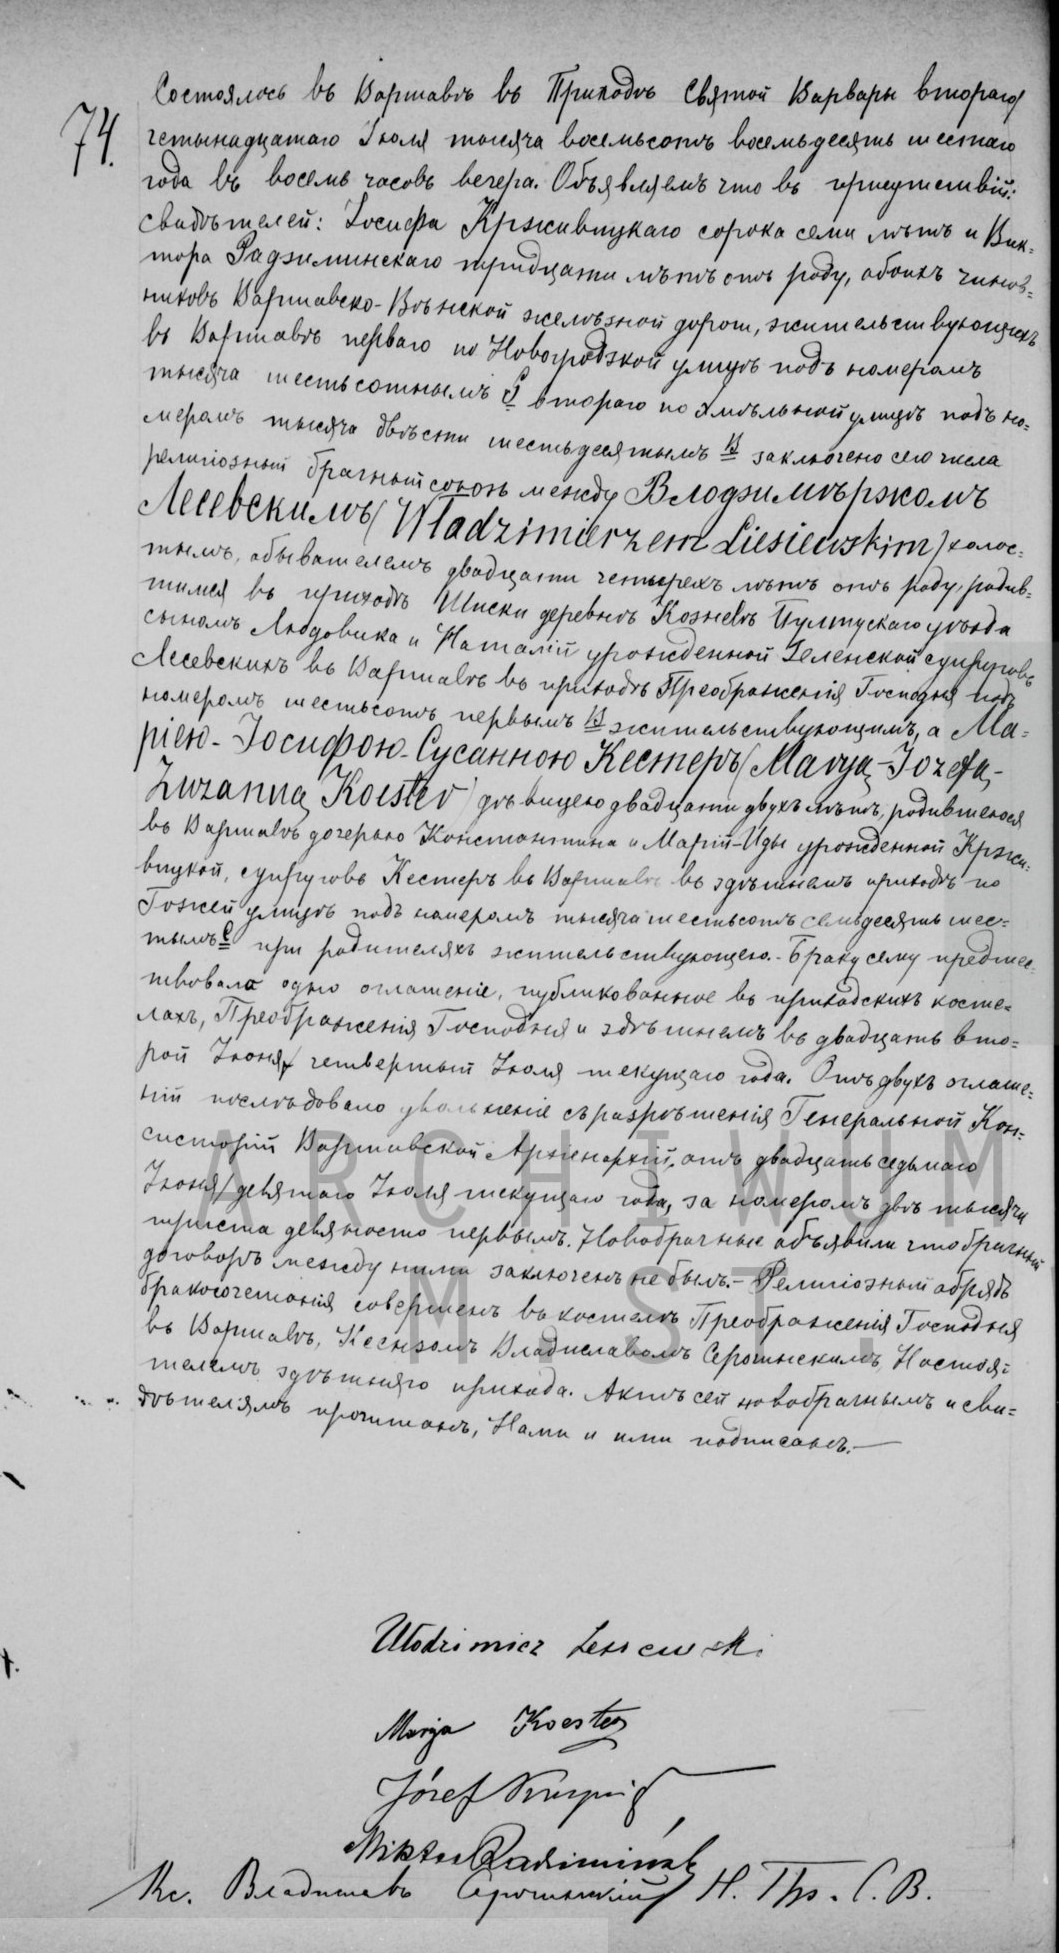 74.
Состоялось въ Варшавѣ въ Приходѣ Святой Варвары втораго/
четырнадцатаго Іюля тысяча восемьсотъ восемьдесятъ шестаго
года въ восемь часовъ вечера. Объявляемъ что въ присутствій:
свидѣтелей: Іосифа Крживицкаго сорока семи лѣтъ и Вик=
тора Радзиминскаго тридцати лѣтъ отъ роду, обоихъ чинов=
никовъ Варшавско-Вѣнской желѣзной дороги, жительствующихъ
въ Варшавѣ перваго по Новогродзкой улицѣ подъ номеромъ
тысяча шестьсотнымъ втораго по Хмѣльной улицѣ подъ но=
меромъ тысяча двѣсти шестьдесятымъ В заключено сего числа
религіозный брачный союзъ между Влодзимѣржомъ
Лесевскимъ (Władzimierzem Liesiewskim) холос=
тымъ, обывателемъ двадцати четырехъ лѣтъ отъ роду, родив=
шимся въ приходѣ деревнѣ Пултускаго уѣзда
сыномъ Людовика и Наталій урожденной Зеленской супруговъ
Лесевскихъ въ Варшавѣ въ приходѣ Преображенія Господня подъ
номеромъ шестьсотъ первымъ В жительствующимъ, а Ма=
ріею-Іосифою-Сусанною Кестеръ (Maryą-Jozefą-
Zuzanną Koester) дѣвицею двадцати двухъ лѣтъ, родившеюся
въ Варшавѣ дочерью Константина и Марій-Иды урожденной Кржи=
вицкой, супруговъ Кестеръ въ Варшавѣ въ здѣшнемъ приходѣ по
Гожей улицѣ подъ номеромъ тысяча шестьсотъ семьдесятъ шес=
тымъ С при родителяхъ жительствующею.- Браку сему предшес=
твовало одно оглашеніе, публикованное въ приходскихъ косте=
лахъ, Преображенія Господня и здѣшнемъ въ двадцать вто=
рой Іюня/ четвертый Іюля текущаго года. Отъ двухъ оглаше=
ній послѣдовало увольненіе съ разрѣшенія Генеральной Кон=
систорій Варшавской Архіепархій, отъ двадцать седьмаго
Іюня/девятаго Іюля текущаго года, за номеромъ двѣ тысячи
триста девяносто первымъ. Новобрачные объявили что брачный
договоръ между ними заключенъ не былъ.- Религіозный обрядъ
бракосочетанія совершенъ въ костелѣ Преображенія Господня
въ Варшавѣ, Ксензомъ Владиславомъ Серочинскимъ, Настоя=
телемъ здѣшняго прихода. Актъ сей новобрачнымъ и сви=
дѣтелямъ прочитанъ, Нами и ими подписанъ.—
ARCHIWUM
M. ST.
Włodzimierz Lesiewski
Marya Koester
Józef
Wiktor Radzimiński
Кс. Владиславъ Серочинскій Н. Пр. С. В.